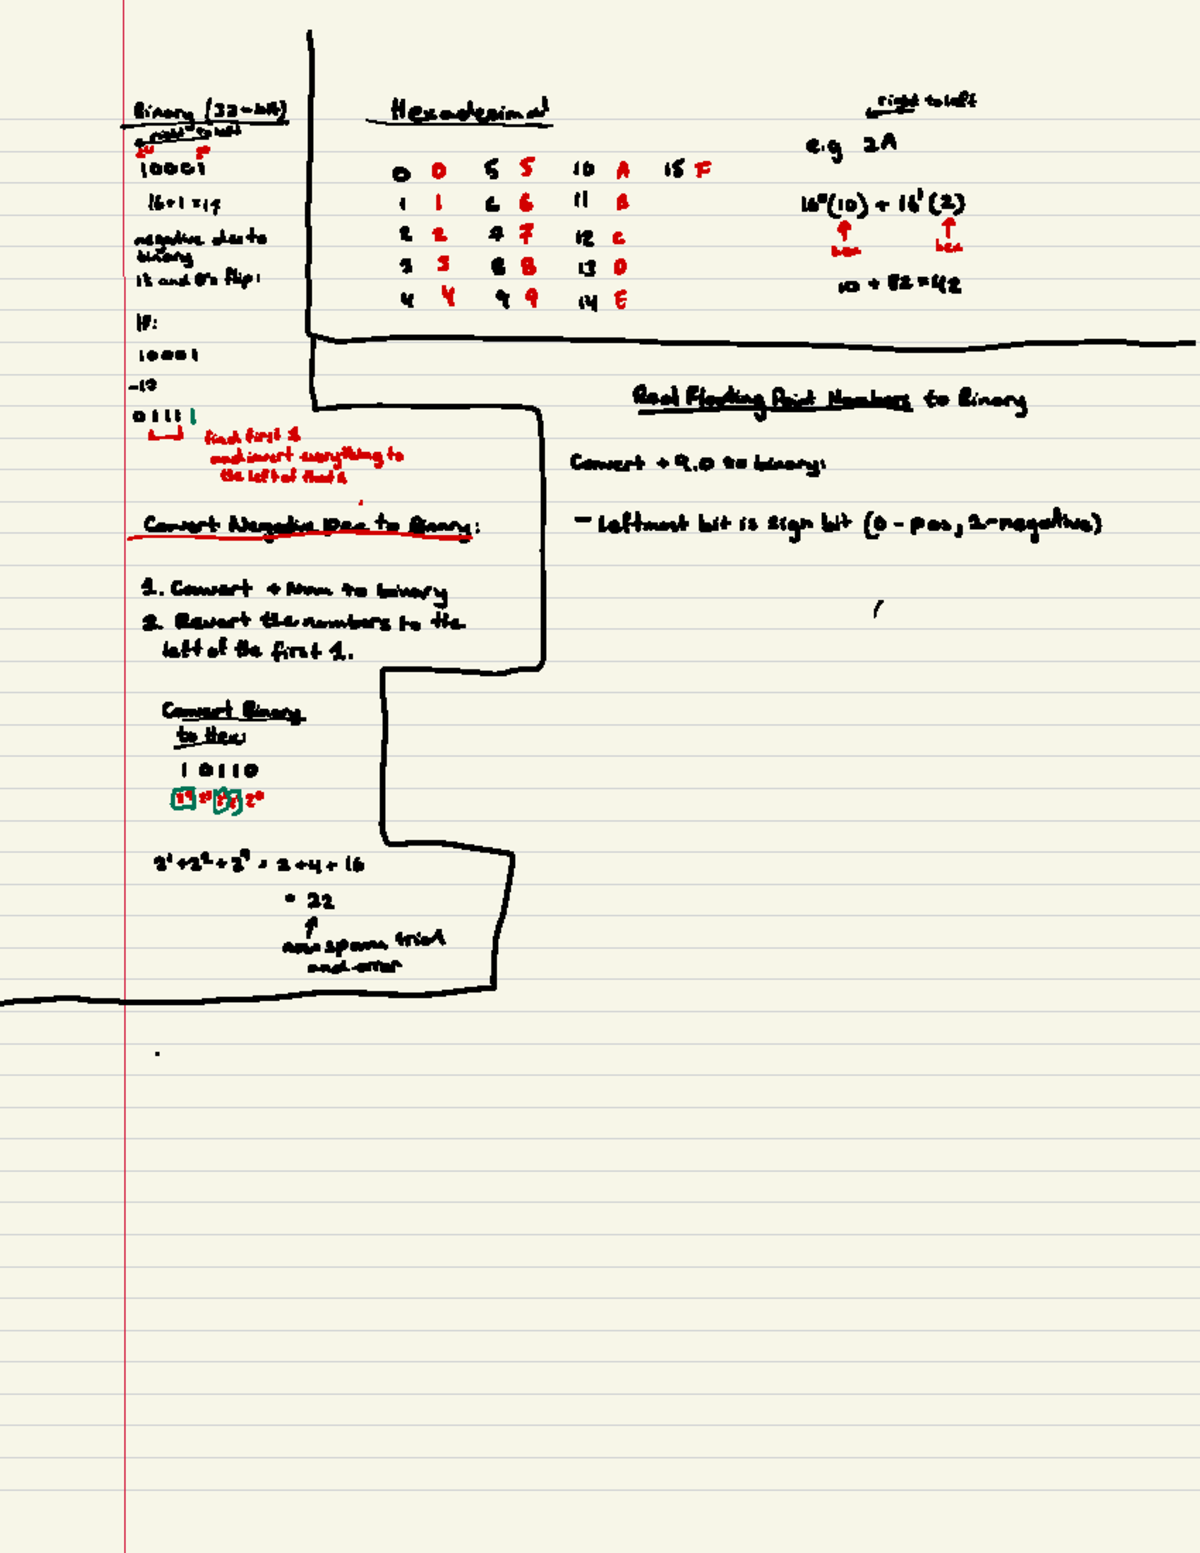 Binary (32-bit)
right to left
2⁴ 2⁰
10001
16+1=17
negative dec to
binary
1s and 0's flip:
If:
10001
-17
01111
find first 1
and invert everything to
the left of that
Convert Negative Dec to Binary:
1. Convert + Num to binary
2. Revert the numbers to the
left of the first 1.
Convert Binary
to Hex:
10110
2⁴ 2³ 2² 2¹ 2⁰
2¹+2²+2⁴ = 2+4+16
= 22
spam trial
and error
Hexadesimal
0 0 5 5 10 A 15 F
1 1 6 6 11 B
2 2 7 7 12 C
3 3 8 8 13 D
4 4 9 9 14 E
right to left
e.g 2A
16⁰(10) + 16¹(2)
hex hex
10 + 32 = 42
Real Floating Point Numbers to Binary
Convert +9.0 to binary:
- Leftmost bit is sign bit (0 - pos, 1 - negative)